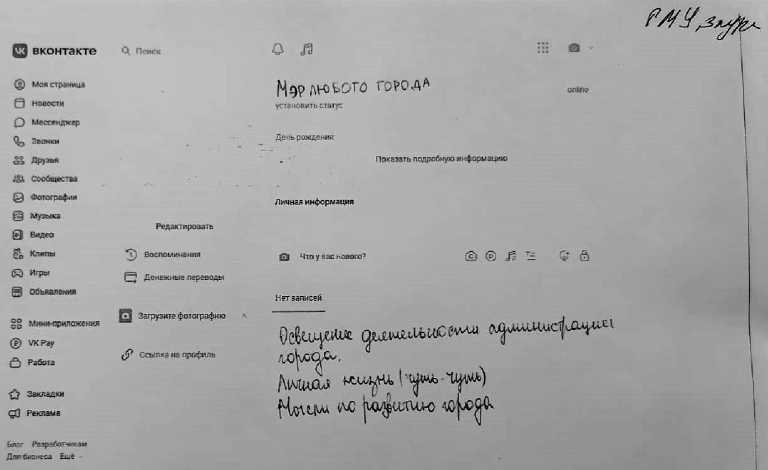 ГМУ, заур
вконтакте
Поиск
Моя страница
Новости
Мессенджер
Звонки
Друзья
Сообщества
Фотографии
Музыка
Видео
Клипы
Игры
Объявления
Мини-приложения
VK Pay
Работа
Закладки
Реклама
Блог Разработчикам
Для бизнеса Ещё
Редактировать
Воспоминания
Денежные переводы
Загрузите фотографию
Ссылка на профиль
Мэр любого города
online
установить статус
День рождения:
Показать подробную информацию
Личная информация
Что у вас нового?
Нет записей
Освещение деятельности администрации
города.
Личная жизнь (чуть-чуть)
Мысли по развитию города